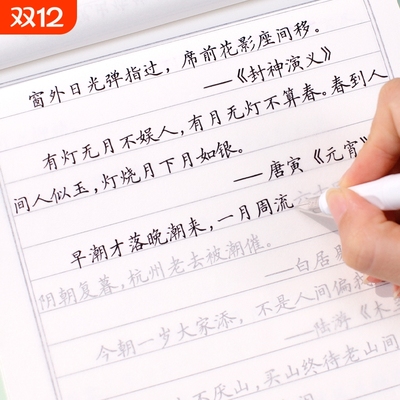 双12
窗外日光弹指过，席前花影座间移。
——《封神演义》
有灯无月不娱人，有月无灯不算春。春到人
间人似玉，灯烧月下月如银。
——唐寅《元宵》
早潮才落晚潮来，一月周流六十
阴朝复暮，杭州老去被潮催。
——白居易
今朝一岁大家添，不是人间偏我
——陆游《木
不厌山，买山终待老山间